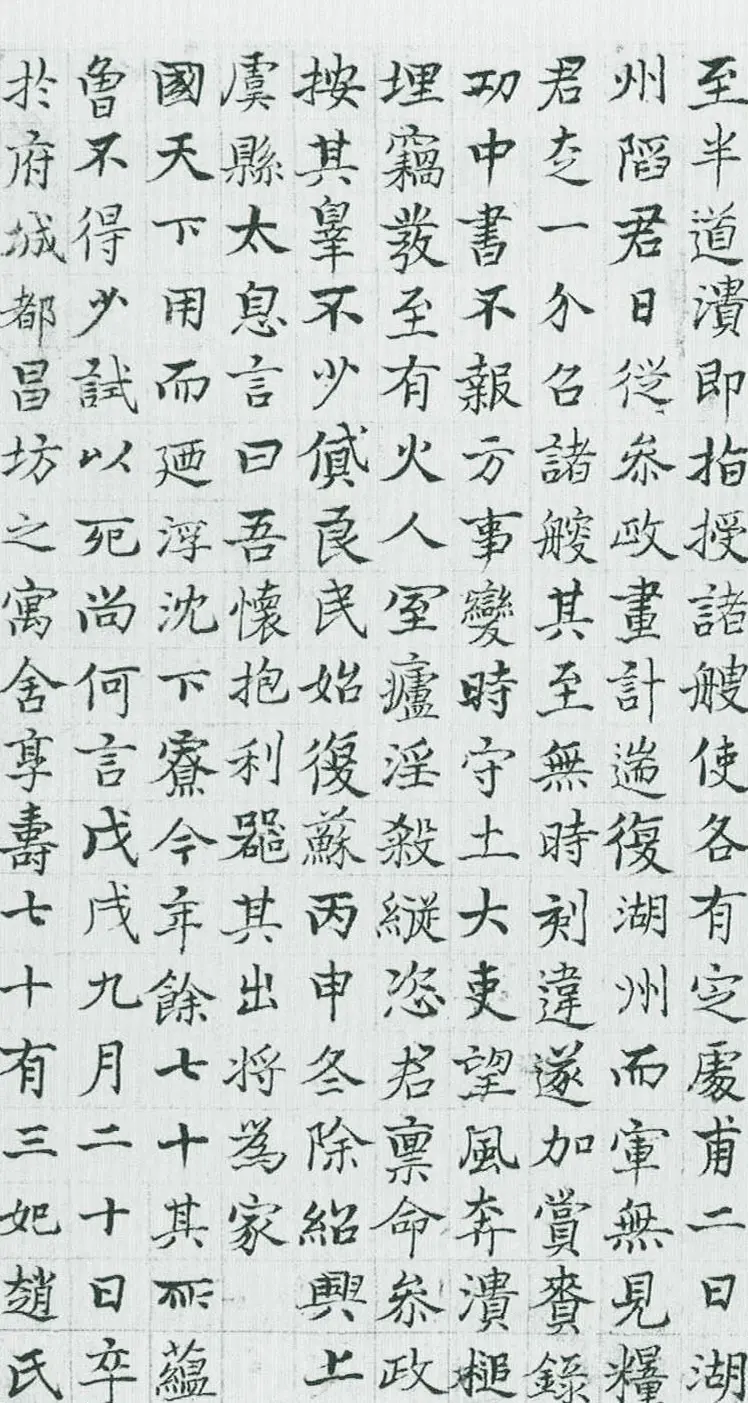 至半道潰即指授諸艘使各有定處甫二日湖
州陷君日從叅政畫計遄復湖州而軍無見糧
君立一分召諸艘其至無時刻違遂加賞賚錄
功中書不報方事變時守土大吏望風奔潰槌
埋竊發至有火人室廬淫殺縱恣君稟命叅政
按其辠不少貸良民始復蘇丙申冬除紹興上
虞縣太息言曰吾懷抱利器其出將為家
國天下用而迺浮沈下寮今年餘七十其所蘊
曾不得少試以死尚何言戊戌九月二十日卒
於府城都昌坊之寓舍享壽七十有三妃趙氏